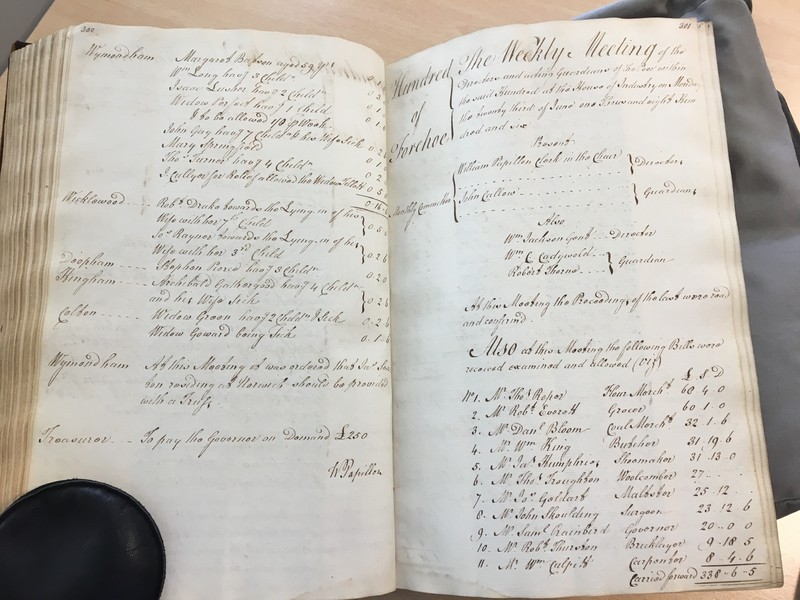 300
Wymondham Margaret Batson aged 59 y.rs
Wm Long havg 3 Childn
Isaac Lusher havg 2 Childn
Widow Perfect havg 1 Child
to be allowed 1/0 p Week
John Gay havg 7 Childn & his Wife Sick
Mary Springfold
Thos Turner havg 4 Childn
0.16
Wicklewood Robt Drake towards the Lying in of his
Wife with her 7th Child 0.5
Jas Raynor towards the Lying in of his
Wife with her 3rd Child 0.2.6
Deopham Stephen havg 3 Childn 0.2.0
Hingham Archibald Gathergood havg 4 Childn
and his Wife Sick 0.2.6
Colton Widow Green havg 2 Childn Sick 0.2.6
Widow Goward being Sick 0.1.6
Wymondham At this Meeting it was ordered that Jas
residing at Norwich should be provided
with a Truss
Treasurer To pay the Governor on Demand £250
W Papillon
301
Hundred of Forehoe
The Weekly Meeting of the
Directors and acting Guardians of the Poor within
the said Hundred at the House of Industry on Monday
the twenty third of June one Thous and eight Hun
dred and six
Present
William Papillon Clerk in the Chair Directors
Monthly Committee
John Cullow Guardians
Also
Wm Jackson Gent Director
Wm C Cadywold
Robert Thorne Guardian
At this Meeting the Proceedings of the last were read
and confirmd
Also at this Meeting the following Bills were
received examined and allowed (Viz)
£ S D
No 1. Mr Thos Roper Flour Mercht 60 4 0
2. Mr Robt Everett Grocer 60 1 0
3. Mr Danl Bloom Coal Mercht 32.1.6
4. Mr Wm King Butcher 31.19.6
5. Mr Jas Humphries Shoemaker 31.13 0
6. Mr Thos Troughton Woolcomber 27
7. Mr Jo Goddart Maltster 25.12
8. Mr John Skoulding Surgeon 23.12.6
9. Mr Saml Rainbird Governor 20..0 0
10. Mr Robt Thurston Bricklayer 9.18 5
11. Mr Wm Culpitt Carpenter 8.4.6
Carried forward 338..6..5